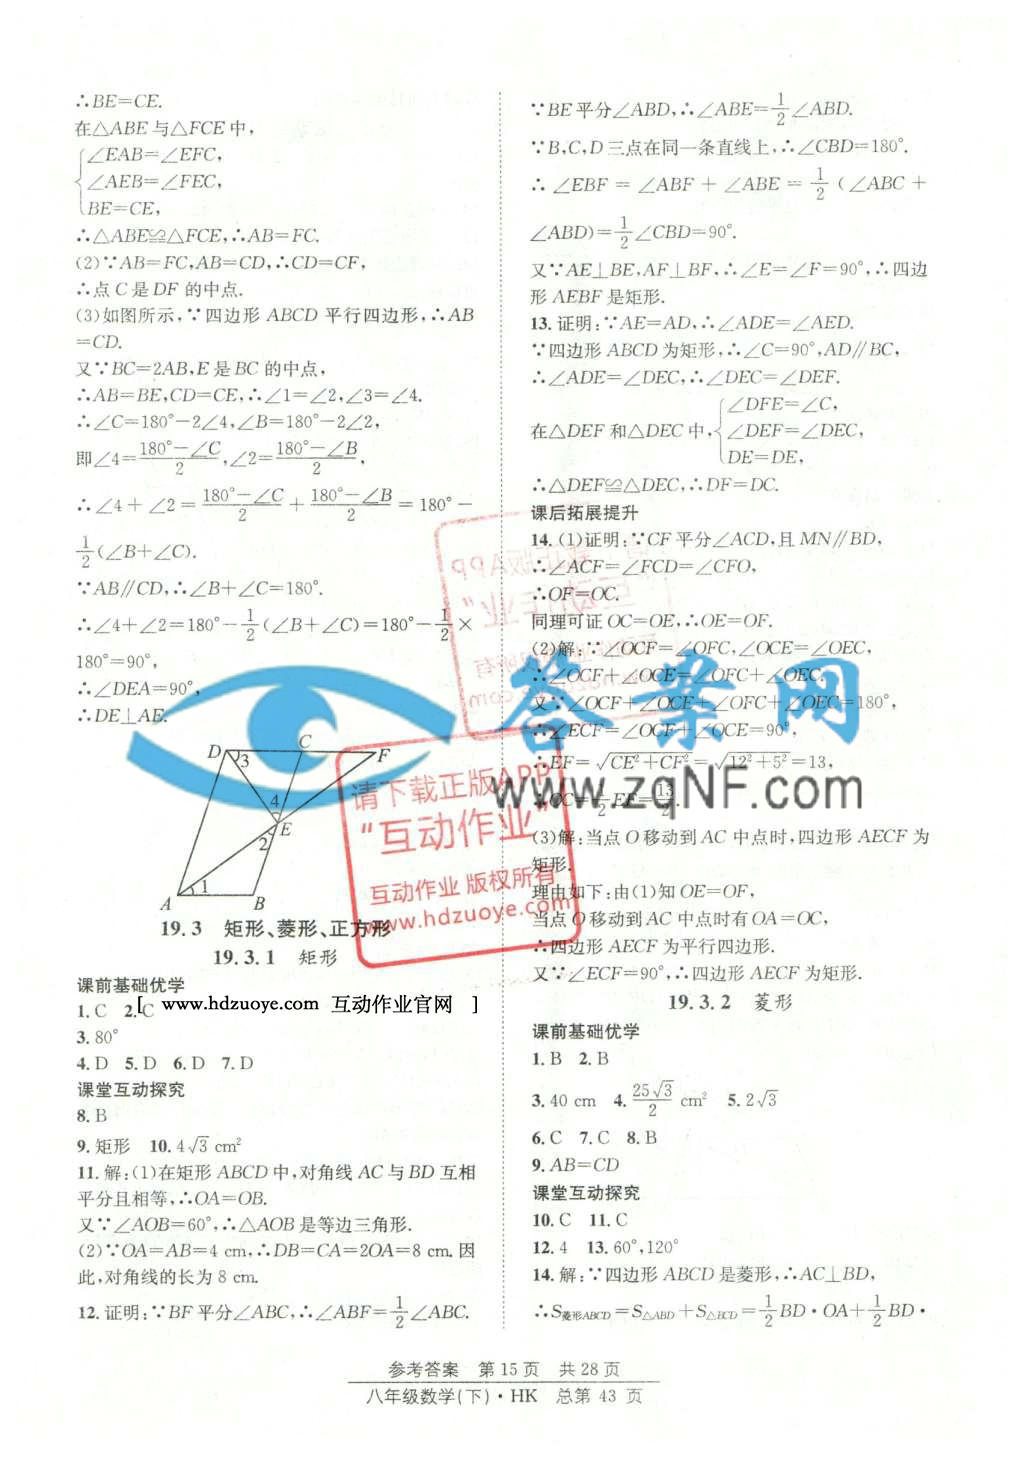 ∴BE=CE.
在△ABE与△FCE中,
∠EAB=∠EFC,
∠AEB=∠FEC,
BE=CE,
∴△ABE≌△FCE,∴AB=FC.
(2)∵AB=FC,AB=CD,∴CD=CF,
∴点C是DF的中点.
(3)如图所示,∵四边形ABCD平行四边形,∴AB
=CD.
又∵BC=2AB,E是BC的中点,
∴AB=BE,CD=CE,∴∠1=∠2,∠3=∠4.
∴∠C=180°-2∠4,∠B=180°-2∠2,
即∠4=(180°-∠C)/2,∠2=(180°-∠B)/2,
∴∠4+∠2=(180°-∠C)/2+(180°-∠B)/2=180°-
1/2(∠B+∠C).
∵AB∥CD,∴∠B+∠C=180°.
∴∠4+∠2=180°-1/2(∠B+∠C)=180°-1/2×
180°=90°,
∴∠DEA=90°,
∴DE⊥AE.
D 3 C F
4
E
2
1
A B
19.3 矩形、菱形、正方形
19.3.1 矩形
课前基础优学
1.C 2.C
[ www.hdzuoye.com 互动作业官网 ]
3.80°
4.D 5.D 6.D 7.D
课堂互动探究
8.B
9.矩形 10.4√3 cm²
11.解:(1)在矩形ABCD中,对角线AC与BD互相
平分且相等,∴OA=OB.
又∵∠AOB=60°,∴△AOB是等边三角形.
(2)∵OA=AB=4 cm,∴DB=CA=2OA=8 cm.因
此,对角线的长为8 cm.
12.证明:∵BF平分∠ABC,∴∠ABF=1/2∠ABC.
∵BE平分∠ABD,∴∠ABE=1/2∠ABD.
∵B,C,D三点在同一条直线上,∴∠CBD=180°.
∴∠EBF=∠ABF+∠ABE=1/2(∠ABC+
∠ABD)=1/2∠CBD=90°.
又∵AE⊥BE,AF⊥BF,∴∠E=∠F=90°,∴四边
形AEBF是矩形.
13.证明:∵AE=AD,∴∠ADE=∠AED.
∵四边形ABCD为矩形,∴∠C=90°,AD∥BC,
∴∠ADE=∠DEC,∴∠DEC=∠DEF.
在△DEF和△DEC中,
∠DFE=∠C,
∠DEF=∠DEC,
DE=DE,
∴△DEF≌△DEC,∴DF=DC.
课后拓展提升
14.(1)证明:∵CF平分∠ACD,且MN∥BD,
∴∠ACF=∠FCD=∠CFO,
∴OF=OC.
同理可证OC=OE,∴OE=OF.
(2)解:∵∠OCF=∠OFC,∠OCE=∠OEC,
∴∠OCF+∠OCE=∠OFC+∠OEC.
又∵∠OCF+∠OCE+∠OFC+∠OEC=180°,
∴∠ECF=∠OCF+∠OCE=90°,
∴EF=√(CE²+CF²)=√(12²+5²)=13,
∴OC=1/2EF=13/2.
(3)解:当点O移动到AC中点时,四边形AECF为
矩形.
理由如下:由(1)知OE=OF,
当点O移动到AC中点时有OA=OC,
∴四边形AECF为平行四边形.
又∵∠ECF=90°,∴四边形AECF为矩形.
19.3.2 菱形
课前基础优学
1.B 2.B
3.40 cm 4.25√3/2 cm² 5.2√3
6.C 7.C 8.B
9.AB=CD
课堂互动探究
10.C 11.C
12.4 13.60°,120°
14.解:∵四边形ABCD是菱形,∴AC⊥BD,
∴S菱形ABCD=S△ABD+S△BCD=1/2BD·OA+1/2BD·
答案网
www.zqnf.com
请下载正版APP
“互动作业”
互动作业 版权所有
www.hdzuoye.com
参考答案 第15页 共28页
八年级数学(下)·HK 总第 43 页